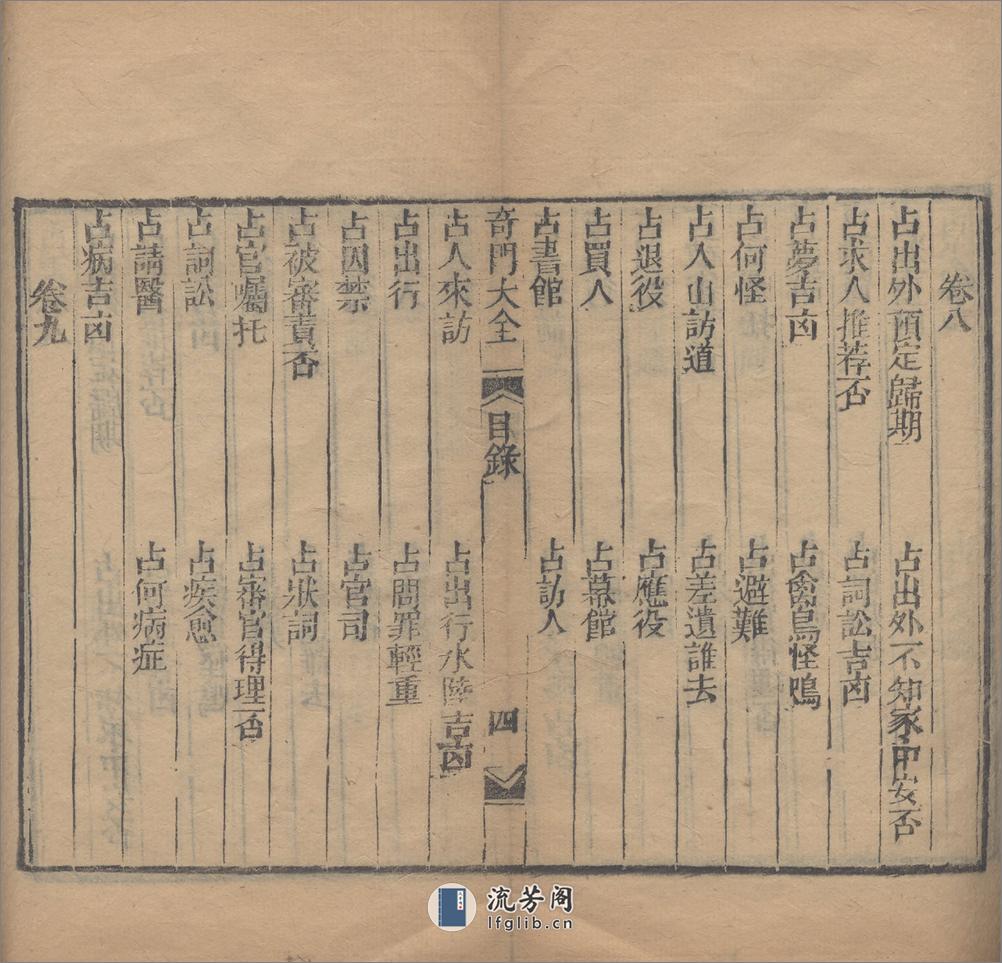 卷八
占出外預定歸期　占出外不知家中安否
占求人推荐否　占詞訟吉凶
占夢吉凶　占禽鳥怪鳴
占何怪　占避難
占入山訪道　占差遺誰去
占退役　占應役
占買人　占幕館
占書館　占訪人
奇門大全　目錄　四
占人來訪　占出行水陸吉凶
占出行　占問罪輕重
占囚禁　占官司
占被審責否　占狀詞
占官囑托　占審官得理否
占詞訟　占疾愈
占請醫　占何病症
占病吉凶
卷九
流芳阁
lfglib.cn